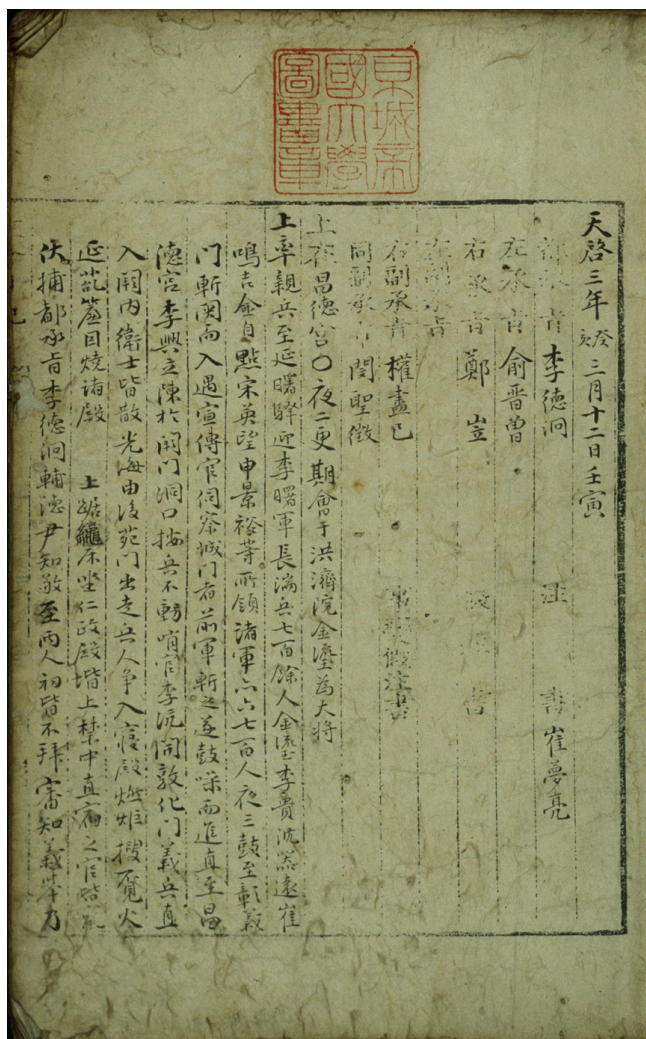 京城帝
國大學
圖書章
天啓三年癸亥三月十二日壬寅
都承旨李德泂 注 書崔夢亮
左承旨俞晋曾
右承旨鄭岦 書
左副承旨
右副承旨權盡己 事變假注書
同副承旨閔聖徵
上在昌德宮○夜二更期會于洪濟院金瑬爲大將
上率親兵至延曙驛迎李曙軍長湍兵七百餘人金瑬李貴沈器遠崔
鳴吉金自點宋英望申景裕等所領諸軍亦六七百人夜三鼓至彰義
門斬関而入遇宣傳官伺察城門者前軍斬之遂鼓噪而進直至昌
德宮李興立陳於闕門洞口按兵不動哨官李沆開敦化門義兵直
入闕內衛士皆散光海由後苑門出走兵人争入寢殿燃炬搜覓火
延
燒諸殿 上踞床坐仁政殿堦上禁中直宿之官皆
伏捕都承旨李德泂輔德尹知敬至兩人初皆不拜審知義擧乃